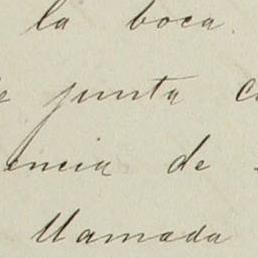 la boca
junta
encia de
llamada